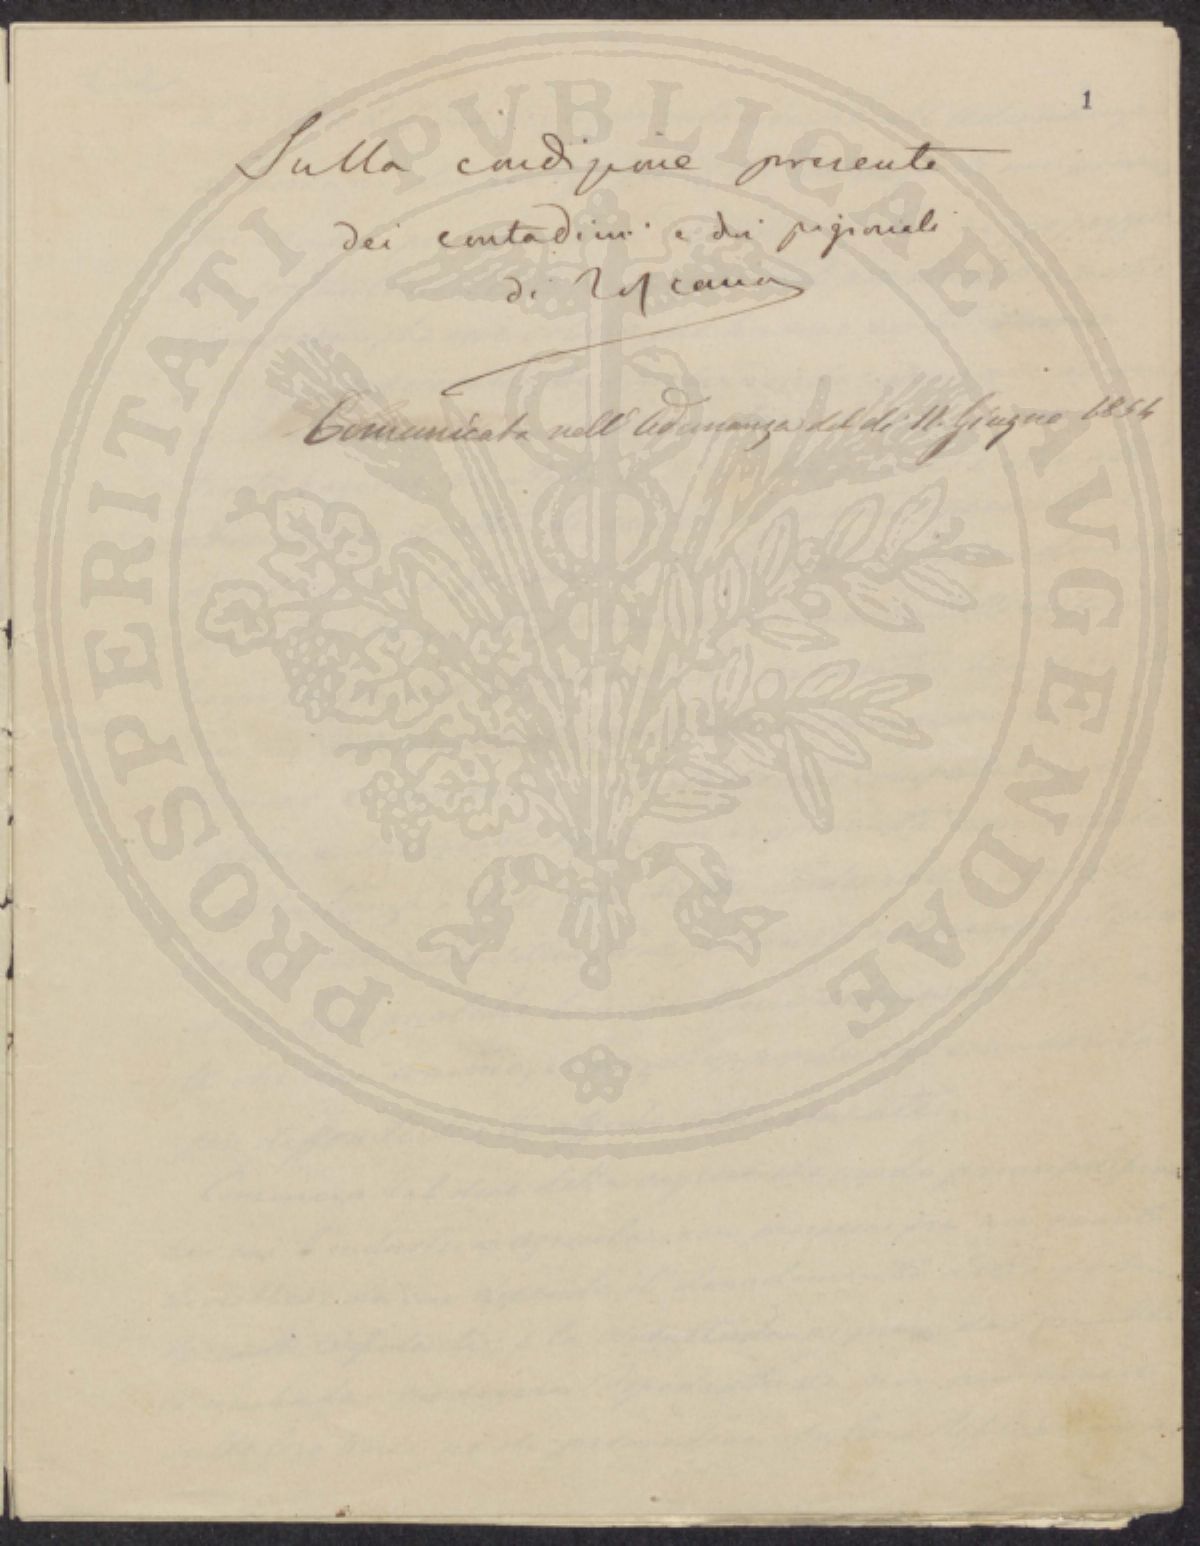 1
Sulla condizione presente
dei contadini e dei pigionali
di Toscana
Comunicata nell'Adunanza del dì 11. Giugno 1854
PROSPERITATI PVBLICAE AVGENDAE